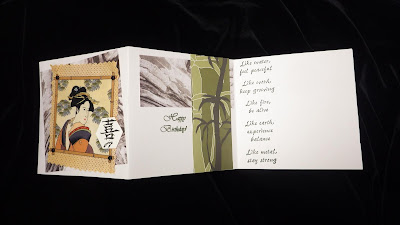 喜
Happy
Birthday!
Like water,
feel peaceful
Like earth,
keep growing
Like fire,
be alive
Like earth,
experience
balance
Like metal,
stay strong